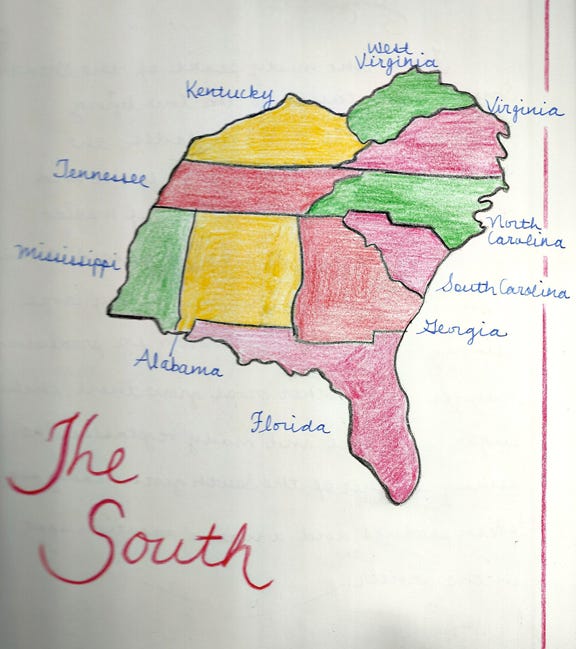 West
Virginia
Kentucky
Virginia
Tennessee
North
Carolina
Mississippi
South Carolina
Georgia
Alabama
Florida
The
South